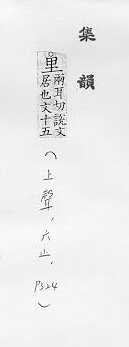 集韻
里
兩耳切說文
居也文十五
(上聲,六止,P524)